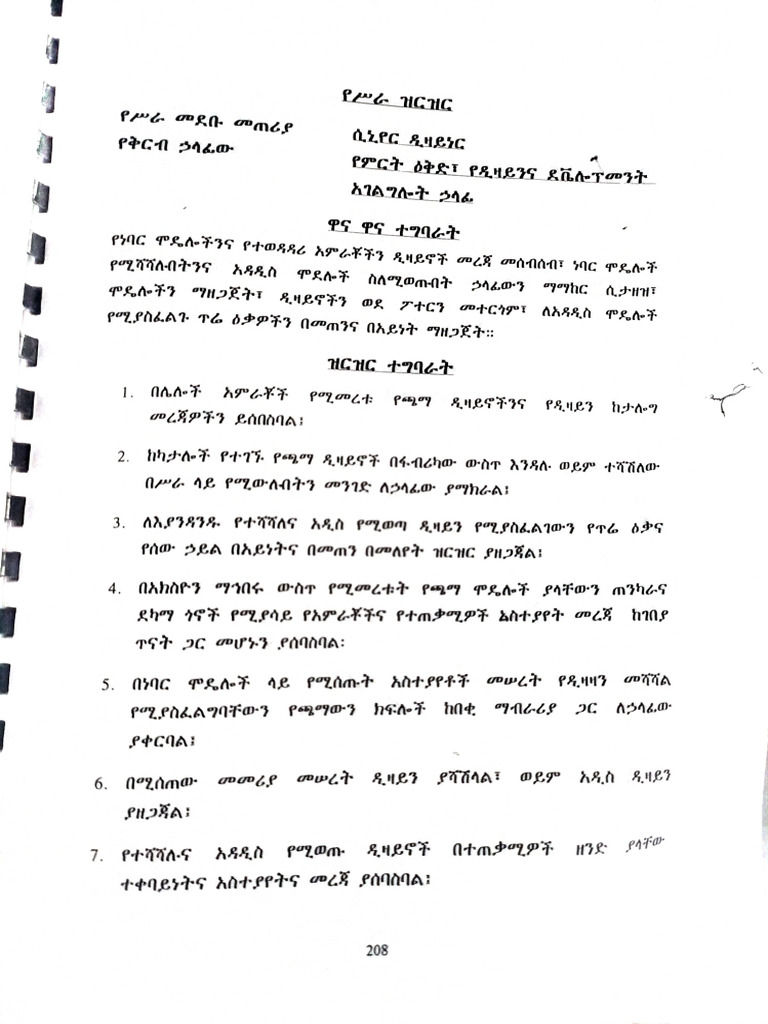 የሥራ ዝርዝር
የሥራ መደቡ መጠሪያ
ሲኒየር ዲዛይነር
የቅርብ ኃላፊው
የምርት ዕቅድ፣ የዲዛይንና ደቬሎፕመንት
አገልግሎት ኃላፊ
ዋና ዋና ተግባራት
የነባር ሞዴሎችንና የተወዳዳሪ አምራቾችን ዲዛይኖች መረጃ መሰብሰብ፣ ነባር ሞዴሎች
የሚሻሻሉበትንና አዳዲስ ሞደሎች ስለሚወጡበት ኃላፊውን ማማከር ሲታዘዝ፣
ሞዴሎችን ማዘጋጀት፣ ዲዛይኖችን ወደ ፖተርን መተርጎም፣ ለአዳዲስ ሞዴሎች
የሚያስፈልጉ ጥሬ ዕቃዎችን በመጠንና በአይነት ማዘጋጀት።
ዝርዝር ተግባራት
1. በሌሎች አምራቾች የሚመረቱ የጫማ ዲዛይኖችንና የዲዛይን ከታሎግ
መረጃዎችን ይሰበስባል፤
2. ከካታሎች የተገኙ የጫማ ዲዛይኖች በፋብሪካው ውስጥ እንዳሉ ወይም ተሻሽለው
በሥራ ላይ የሚውሉበትን መንገድ ለኃላፊው ያማክራል፤
3. ለእያንዳንዱ የተሻሻለና አዲስ የሚወጣ ዲዛይን የሚያስፈልገውን የጥሬ ዕቃና
የሰው ኃይል በአይነትና በመጠን በመለየት ዝርዝር ያዘጋጃል፤
4. በአክስዮን ማኅበሩ ውስጥ የሚመረቱት የጫማ ሞዴሎች ያላቸውን ጠንካራና
ደካማ ጎኖች የሚያሳይ የአምራቾችና የተጠቃሚዎች አስተያየት መረጃ ከገበያ
ጥናት ጋር መሆኑን ያሰባስባል፡
5. በነባር ሞዴሎች ላይ የሚሰጡት አስተያየቶች መሠረት የዲዛዛን መሻሻል
የሚያስፈልግባቸውን የጫማውን ክፍሎች ከበቂ ማብራሪያ ጋር ለኃላፊው
ያቀርባል፤
6. በሚሰጠው መመሪያ መሠረት ዲዛይን ያሻሽላል፣ ወይም አዲስ ዲዛይን
ያዘጋጃል፤
7. የተሻሻሉና አዳዲስ የሚወጡ ዲዛይኖች በተጠቃሚዎች ዘንድ ያላቸው
ተቀባይነትና አስተያየትና መረጃ ያሰባስባል፤
208